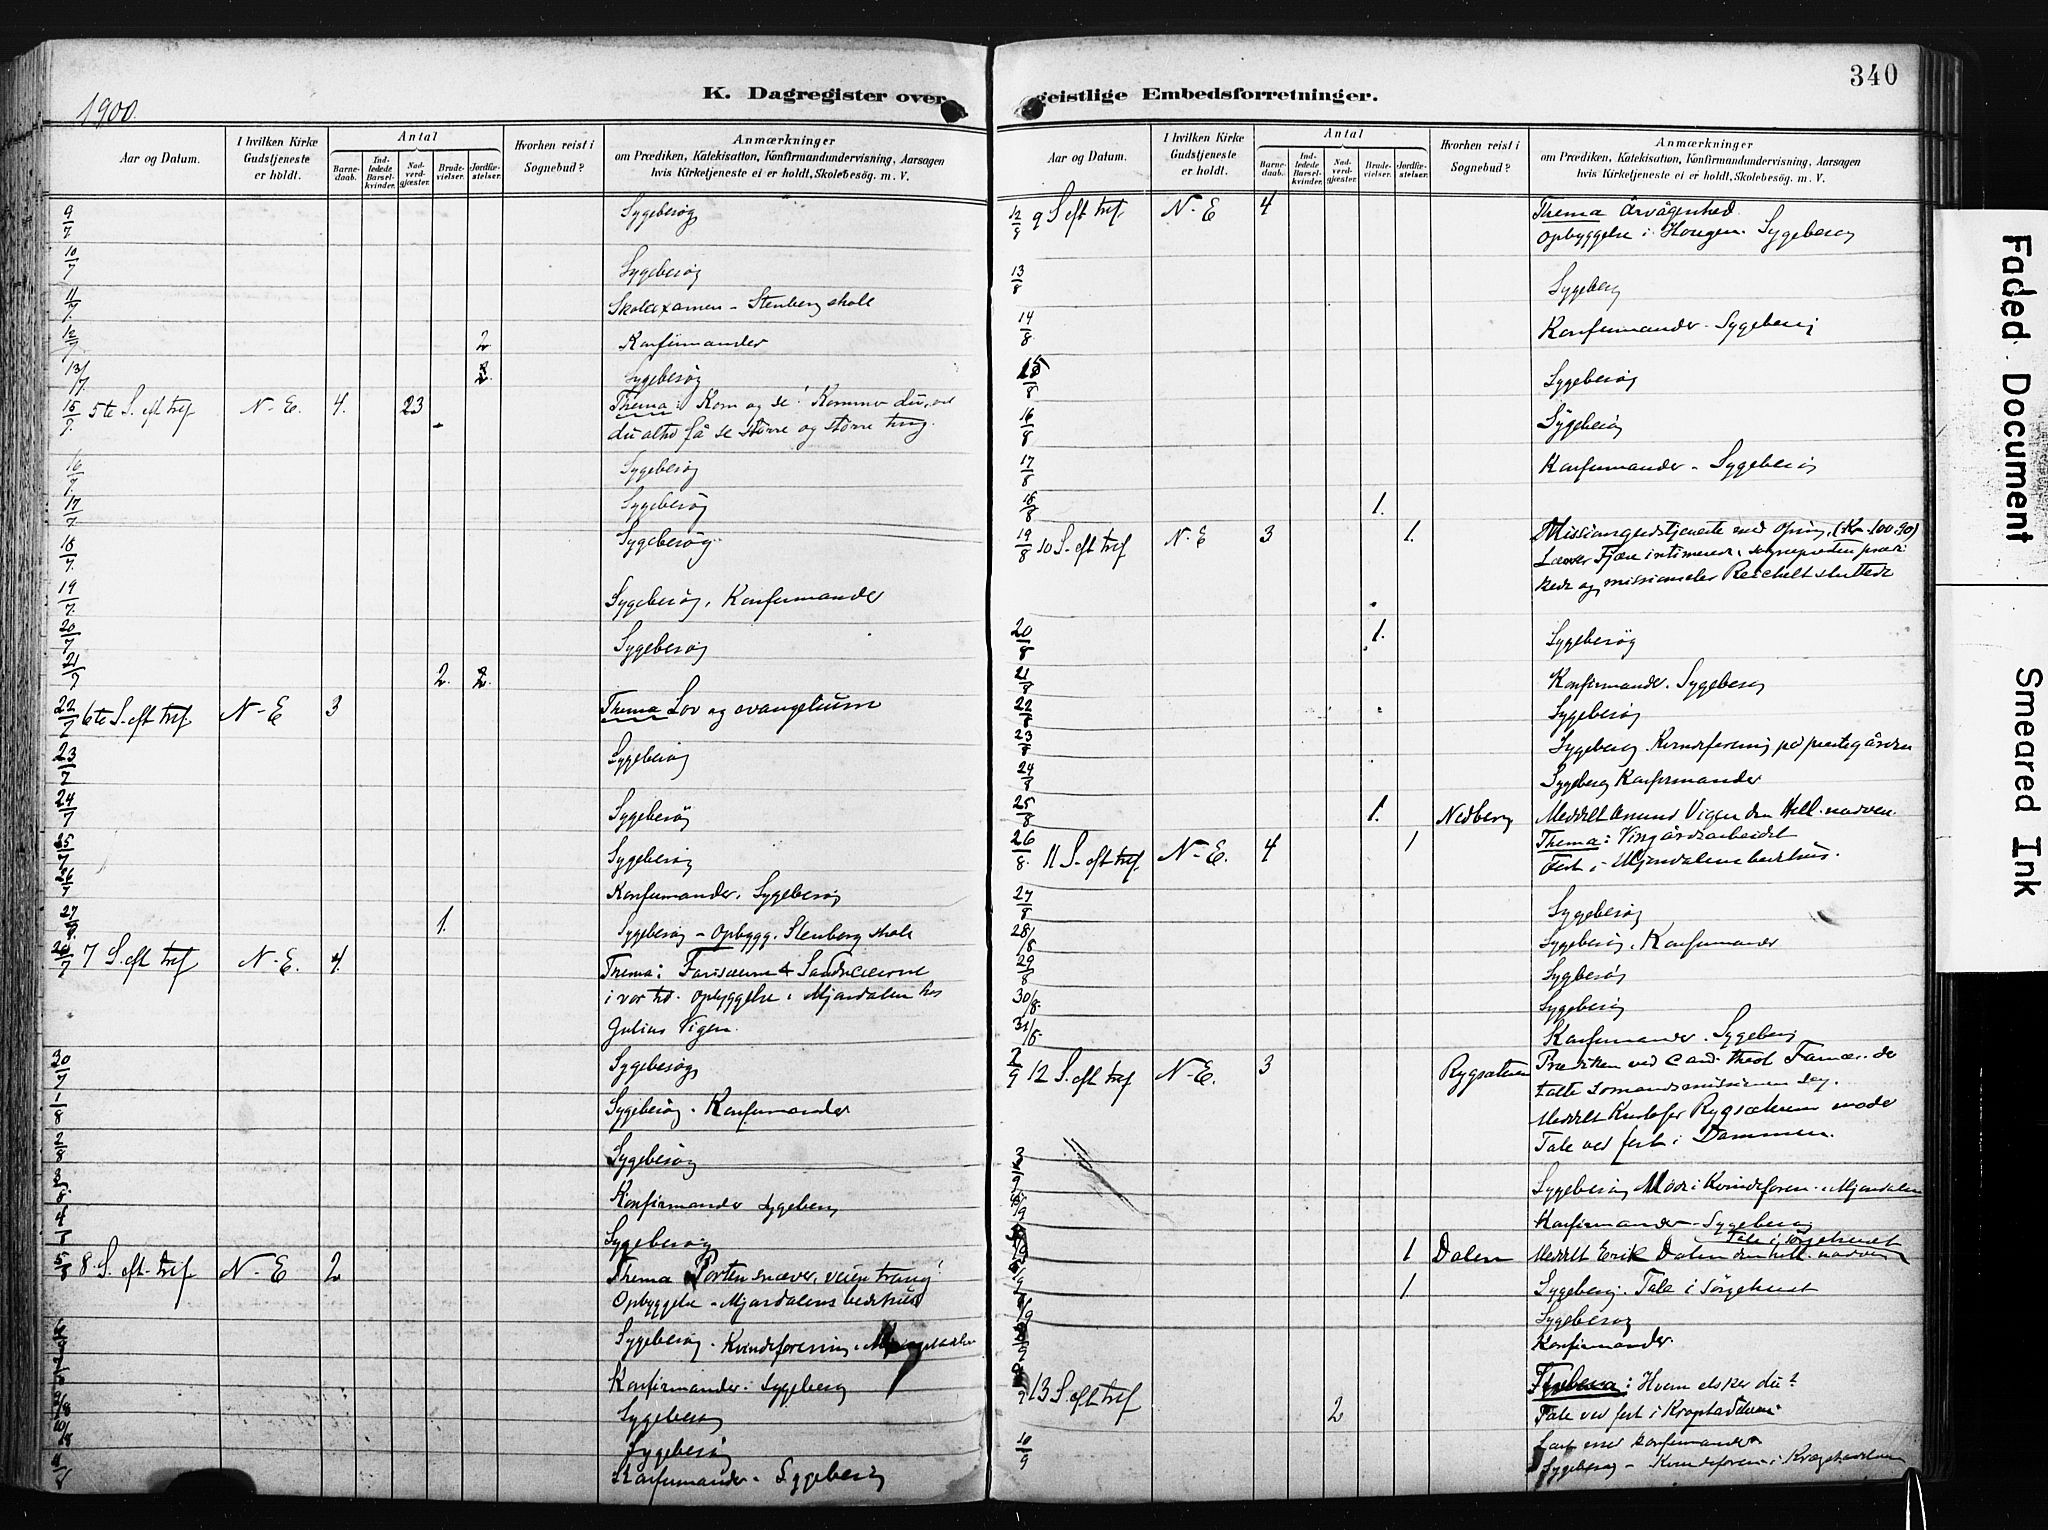 340
1900.
K. Dagregister over geistlige Embedsforretninger.
Aar og Datum.
I hvilken Kirke Gudstjeneste er holdt.
Antal
Barnedaab.
Indledede Barselkvinder.
Nadverdgjester.
Brudevielser.
Jordfæstelser.
Hvorhen reist i Sognebud?
Anmærkninger
om Prædiken, Katekisation, Konfirmandundervisning, Aarsagen
hvis Kirketjeneste ei er holdt, Skolebesög. m. V.
9/7 Sygebesøg
10/7 Sygebesøg
11/7 Skolexamen - Stenberg skole
12/7 2 Konfirmander
13/7 2 Sygebesøg
15/7 5te S. eft tref N-E. 4. 23 Thema: Kom og se! Kommer du, vil
du altid få se større og større ting.
16/7 Sygebesøg
17/7 Sygebesøg
18/7 Sygebesøg
19/7 Sygebesøg, Konfirmander
20/7 Sygebesøg
21/7 2. 2.
22/7 6te S. eft tref N-E 3 Thema Lov og evangelium
23/7 Sygebesøg
24/7 Sygebesøg
25/7 Sygebesøg
26/7 Konfirmander. Sygebesøg
27/7 1. Sygebesøg - Opbygg. Stenberg skole
7 S. eft tref N-E. 4. Thema: Farisæerne & Sadducæerne
i vor tid. Opbyggelse i Mjøndalen hos
Julius Vigen.
30/7 Sygebesøg
1/8 Sygebesøg. Konfirmander
2/8 Sygebesøg
3/8 Konfirmander Sygebesøg
4/8 Sygebesøg
5/8 8. S. eft. tref N-E 2 Thema Porten snæver, veien trang!
Opbyggelse - Mjøndalens bedehus
Sygebesøg. Kvindeforening i
Konfirmander. Sygebesøg
9/8 Sygebesøg
10/8 Sygebesøg
Konfirmander - Sygebesøg
Aar og Datum.
I hvilken Kirke Gudstjeneste er holdt.
Antal
Barnedaab.
Indledede Barselkvinder.
Nadverdgjester.
Brudevielser.
Jordfæstelser.
Hvorhen reist i Sognebud?
Anmærkninger
om Prædiken, Katekisation, Konfirmandundervisning, Aarsagen
hvis Kirketjeneste ei er holdt, Skolebesög. m. V.
12/8 9 S eft tref N-E 4 Thema Årvågenhed.
Opbyggelse i Haugen. Sygebesøg
13/8 Sygebesøg
14/8 Konfirmander. Sygebesøg
15/8 Sygebesøg
16/8 Sygebesøg
17/8 Konfirmander - Sygebesøg
18/8 1.
19/8 10 S. eft tref N-E 3 1. Missionsgudstjeneste med ofring. (Kr. 100.90)
Lærer Fjære intimerede, sognepresten præ-
kede og missionselev Reichelt sluttede
20/8 1. Sygebesøg
21/8 Konfirmander. Sygebesøg
22/8 Sygebesøg
23/8 Sygebesøg Kvindeforening på prestegården
24/8 Sygebesøg Konfirmander
25/8 1. Nedberg Meddelt Amund Vigen den Hell. nadver.
26/8 11 S. eft tref. N-E. 4 1 Thema: Vingårdsarbeidet
Fest i Mjøndalens bedehus.
27/8 Sygebesøg
28/8 Sygebesøg. Konfirmander
29/8 Sygebesøg
30/8. Sygebesøg
31/8. Konfirmander. Sygebesøg
2/9 12 S. eft tref N-E. 3 Rygsæteren Prædiken ved Cand. theol der
talte Sømandsmissionens sag.
Meddelt Rygsæteren nadver
Tale ved fest i Dammen.
3/9 Sygebesøg Møde i Kvindeforen. i Mjøndalen
Konfirmander - Sygebesøg
Tale i sørgehuset
1 Dalen Meddelt Erik Dalen den hell. nadver
1 Sygebesøg. Tale i Sørgehuset
Sygebesøg
Konfirmander.
13 S. eft tref Thema: Hvem elsker du?
2 Tale ved fest i
10/9 Læst med konfirmander
Sygebesøg - Kvindeforen. i
Faded Document
Smeared Ink